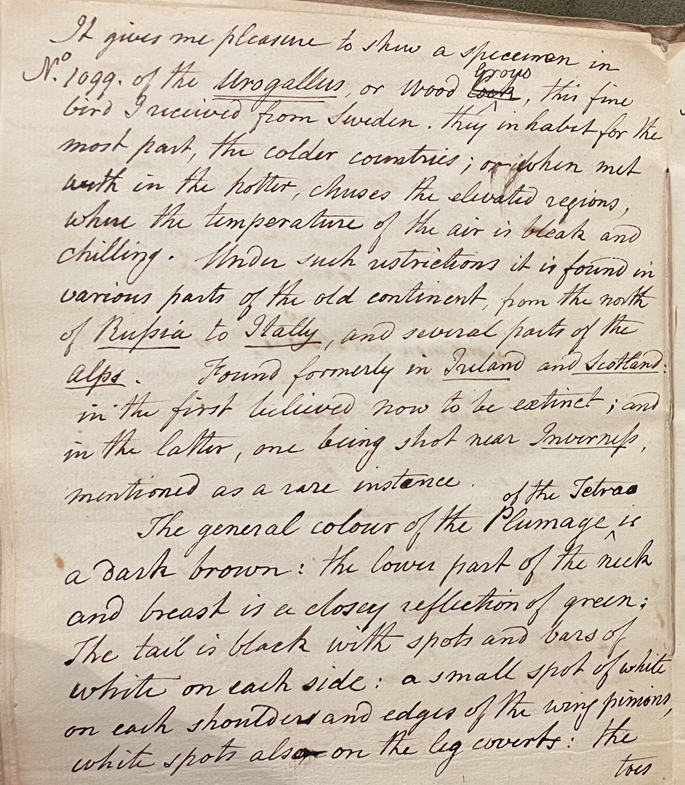 It gives me pleasure to shew a specimen in
Grous
No 1099. of the Urogallus, or wood Cock, this fine
bird I received from Sweden. they inhabit for the
most part, the colder countries; or when met
with in the hotter, chuses the elevated regions,
where the temperature of the air is bleak and
chilling. Under such restrictions it is found in
various parts of the old continent, from the north
of Russia to Itally, and several parts of the
Alps. Found formerly in Ireland and Scotland:
in the first believed now to be extinct; and
in the latter, one being shot near Inverness,
mentioned as a rare instance.
of the Tetrao
The general colour of the Plumage ^ is
a dark brown: the lower part of the neck
and breast is a closey reflection of green;
The tail is black with spots and bars of
white on each side: a small spot of white
on each shoulders and edges of the wing pinions,
white spots also on the leg coverts: the
toes